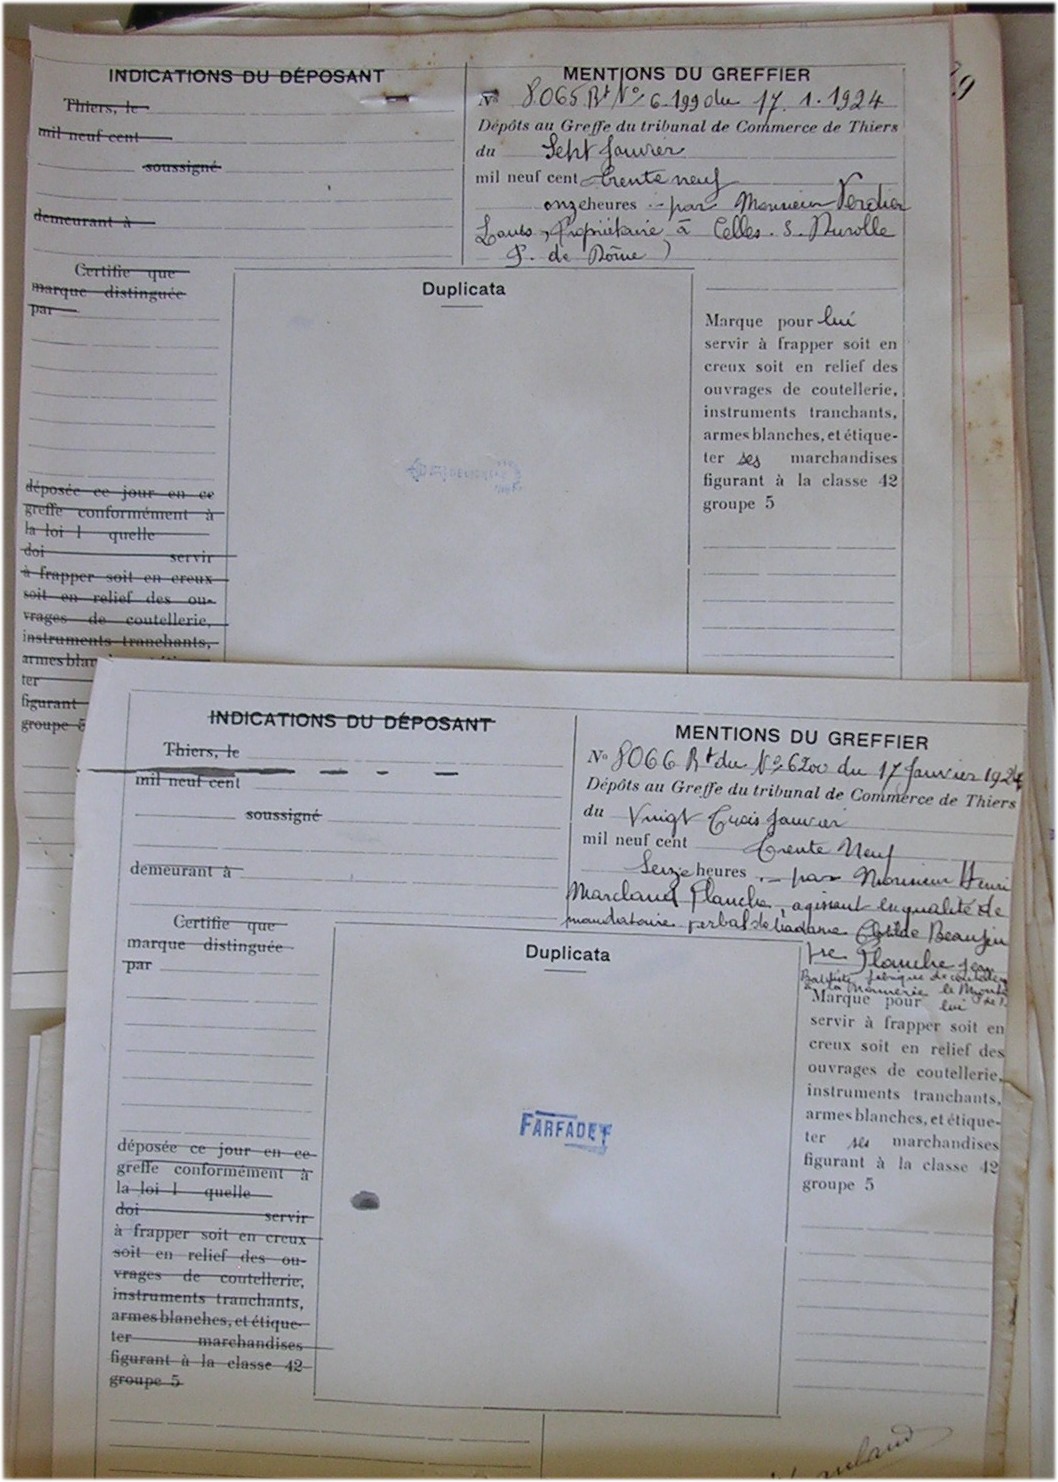 INDICATIONS DU DÉPOSANT
Thiers, le
mil neuf cent
soussigné
demeurant à
Certifie que
marque distinguée
par
déposée ce jour en ce
greffe conformément à
la loi l quelle
doi servir
à frapper soit en creux
soit en relief des ou-
vrages de coutellerie,
instruments tranchants,
armes blan
ter
figurant
groupe 5
MENTIONS DU GREFFIER
N° 8065 Rt N° 6.199 du 17.1.1924
Dépôts au Greffe du tribunal de Commerce de Thiers
du Sept Janvier
mil neuf cent trente neuf
onze heures par Monsieur Verdier
Louis, Propriétaire à Celles. s. Durolle
P. de Dôme)
Duplicata
Marque pour lui
servir à frapper soit en
creux soit en relief des
ouvrages de coutellerie,
instruments tranchants,
armes blanches, et étique-
ter ses marchandises
figurant à la classe 42
groupe 5
INDICATIONS DU DÉPOSANT
Thiers, le
mil neuf cent
soussigné
demeurant à
Certifie que
marque distinguée
par
déposée ce jour en ce
greffe conformément à
la loi l quelle
doi servir
à frapper soit en creux
soit en relief des ou-
vrages de coutellerie,
instruments tranchants,
armes blanches, et étique-
ter marchandises
figurant à la classe 42
groupe 5
MENTIONS DU GREFFIER
N° 8066 Rt du N° 6200 du 17 Janvier 1924
Dépôts au Greffe du tribunal de Commerce de Thiers
du Vingt Trois Janvier
mil neuf cent Trente Neuf
Seize heures par Monsieur Henri
Marcland Planche, agissant en qualité de
mandataire verbal de Madame Clotilde Beaujeu
Vve Planche Jean
Baptiste fabrique de coutellerie
à la Monnerie le Montel
Marque pour lui
servir à frapper soit en
creux soit en relief des
ouvrages de coutellerie,
instruments tranchants,
armes blanches, et étique-
ter ses marchandises
figurant à la classe 42
groupe 5
Duplicata
FARFADET